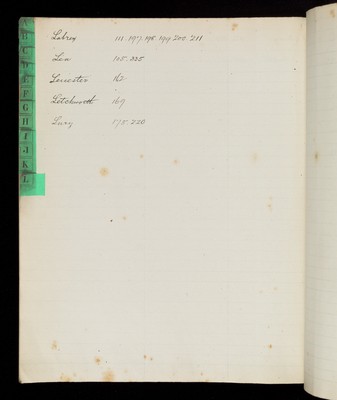 B
C
D
E
F
G
H
I
J
K
L
Labrey 111. 197. 198. 199. 200. 211
Lea 105. 225
Leicester 162
Letchworth 169
Lucy 175. 220